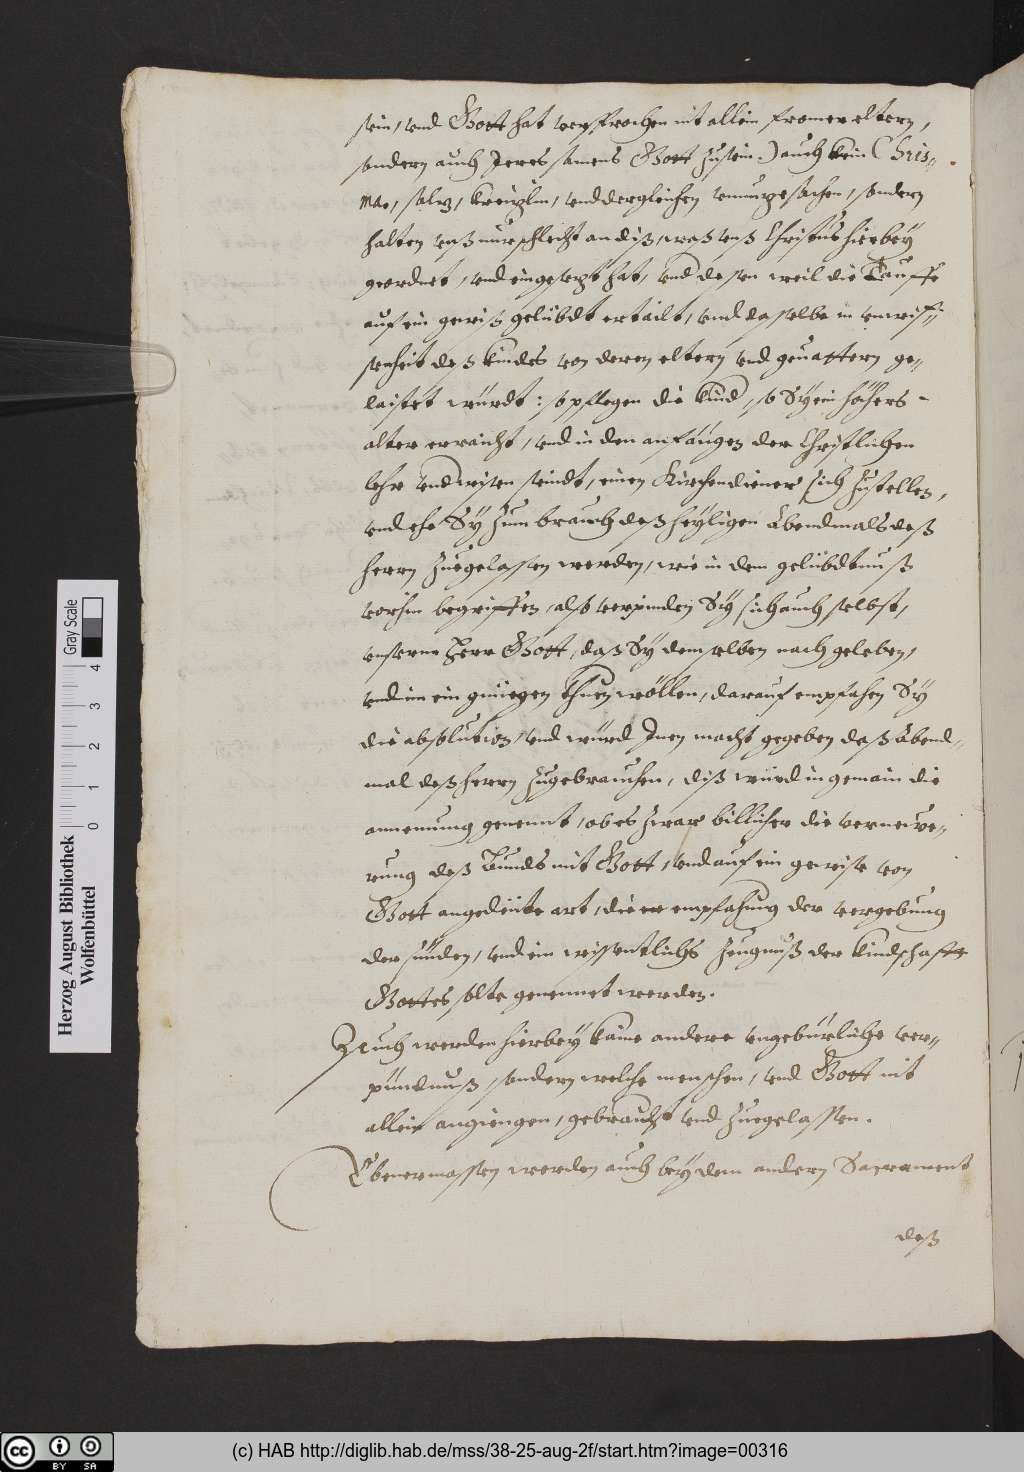 sein, und Gott hat versprochen nit allein fromer eltern,
sondern auch Jeres samens Gott zusein.) auch kein Chris„
ma, saltz, kreutzlin, und dergleichen sachen, sondern
halten unß nur schlecht an diß, waß unß Christus hierbey
geordnet, und eingesetzt hat, und dessen weil die Tauffe
auf ein gewiß gelübdt ertailt, und dasselbe in unwis„
senheit deß kindes von deren eltern und gevattern ge„
laistet würdt: so pflegen die kind, so Sy ein höhers
alter erraicht, und in den anfängen der Christlichen
lehr underwisen seindt, einen Kirchendiener sich zustellen,
und ehe Sy zum brauch deß heyligen Abendmals deß
herrn zuegelassen werden, wie in dem gelübdtnuß
vorhin begriffen, also verpinden Sy sich auch selbst,
unserm Herr Gott, daß Sy demselben nach geleben,
und im ein genüegen thuen wöllen, darauf empfahen Sy
die absolution, und würd Inen macht gegeben daß Abend„
mal deß herrn zugebrauchen, diß würd in gemain die
annemung genennt, ob es zwar billicher die verneüwe„
rung deß Bunds mit Gott, und auf ein gewise von
Gott angedeüte art, die empfahung der vergebung
der sünden, und ein wissentlichs zeugnuß der kindschafft
Gottes solte genennet werden.
Auch werden hierbey kaine andere ungebürliche ver„
püntnuß, sondern welche menschen, und Gott nit
allein angiengen, gebraucht und zuegelassen.
Ebenermassen werden auch bey dem andern Sacrament
deß
Herzog August Bibliothek
Wolfenbüttel
0 1 2 3 4
Gray Scale
cc BY SA
(c) HAB http://diglib.hab.de/mss/38-25-aug-2f/start.htm?image=00316